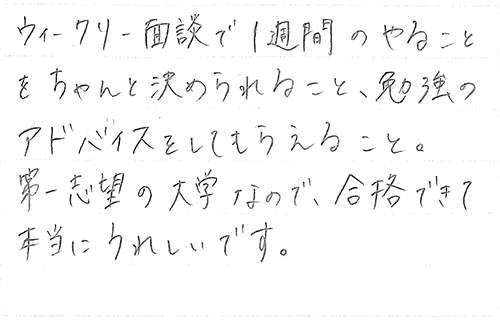 ウィークリー面談で1週間のやること
をちゃんと決められること、勉強の
アドバイスをしてもらえること。
第一志望の大学なので、合格できて
本当にうれしいです。